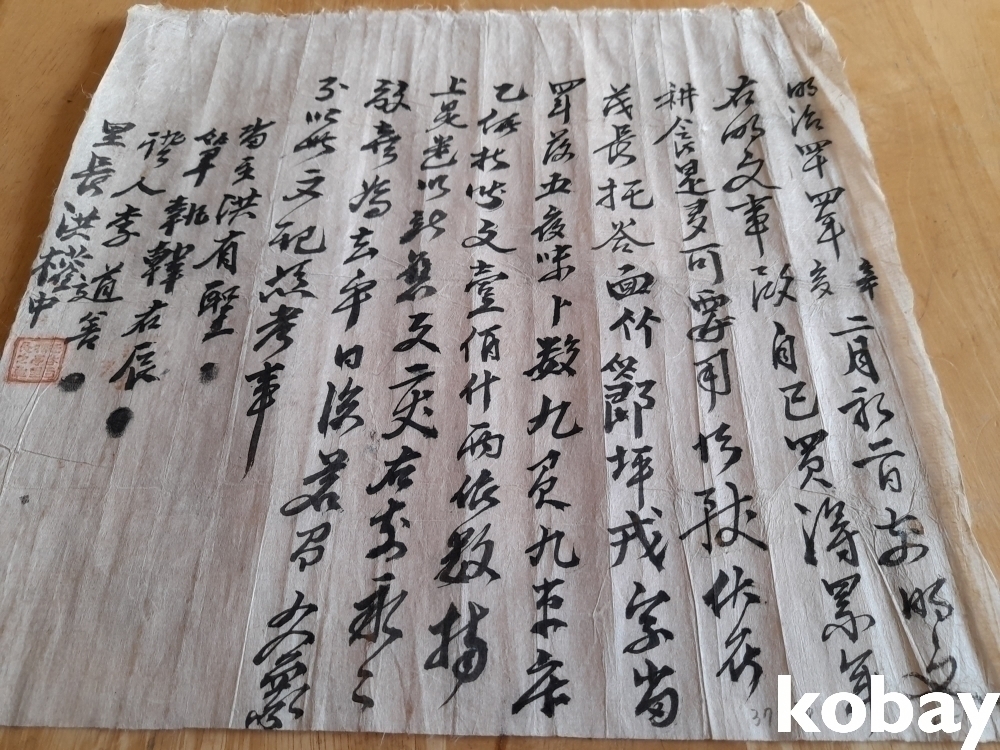 明治四四年辛亥二月初二日前明文
右明文事段自己買得累年
耕食是多可要用所致伏在
茂長托谷面竹節坪戎字畓
四斗落五夜味卜数九負九束庫
乙価折時文壹佰什兩依数捧
上是遣以新旧文二丈右前永永
放賣為去乎日後若有
以此文記憑考事
畓主洪有聖
筆執韓右辰
證人李道善
里長洪中
kobay